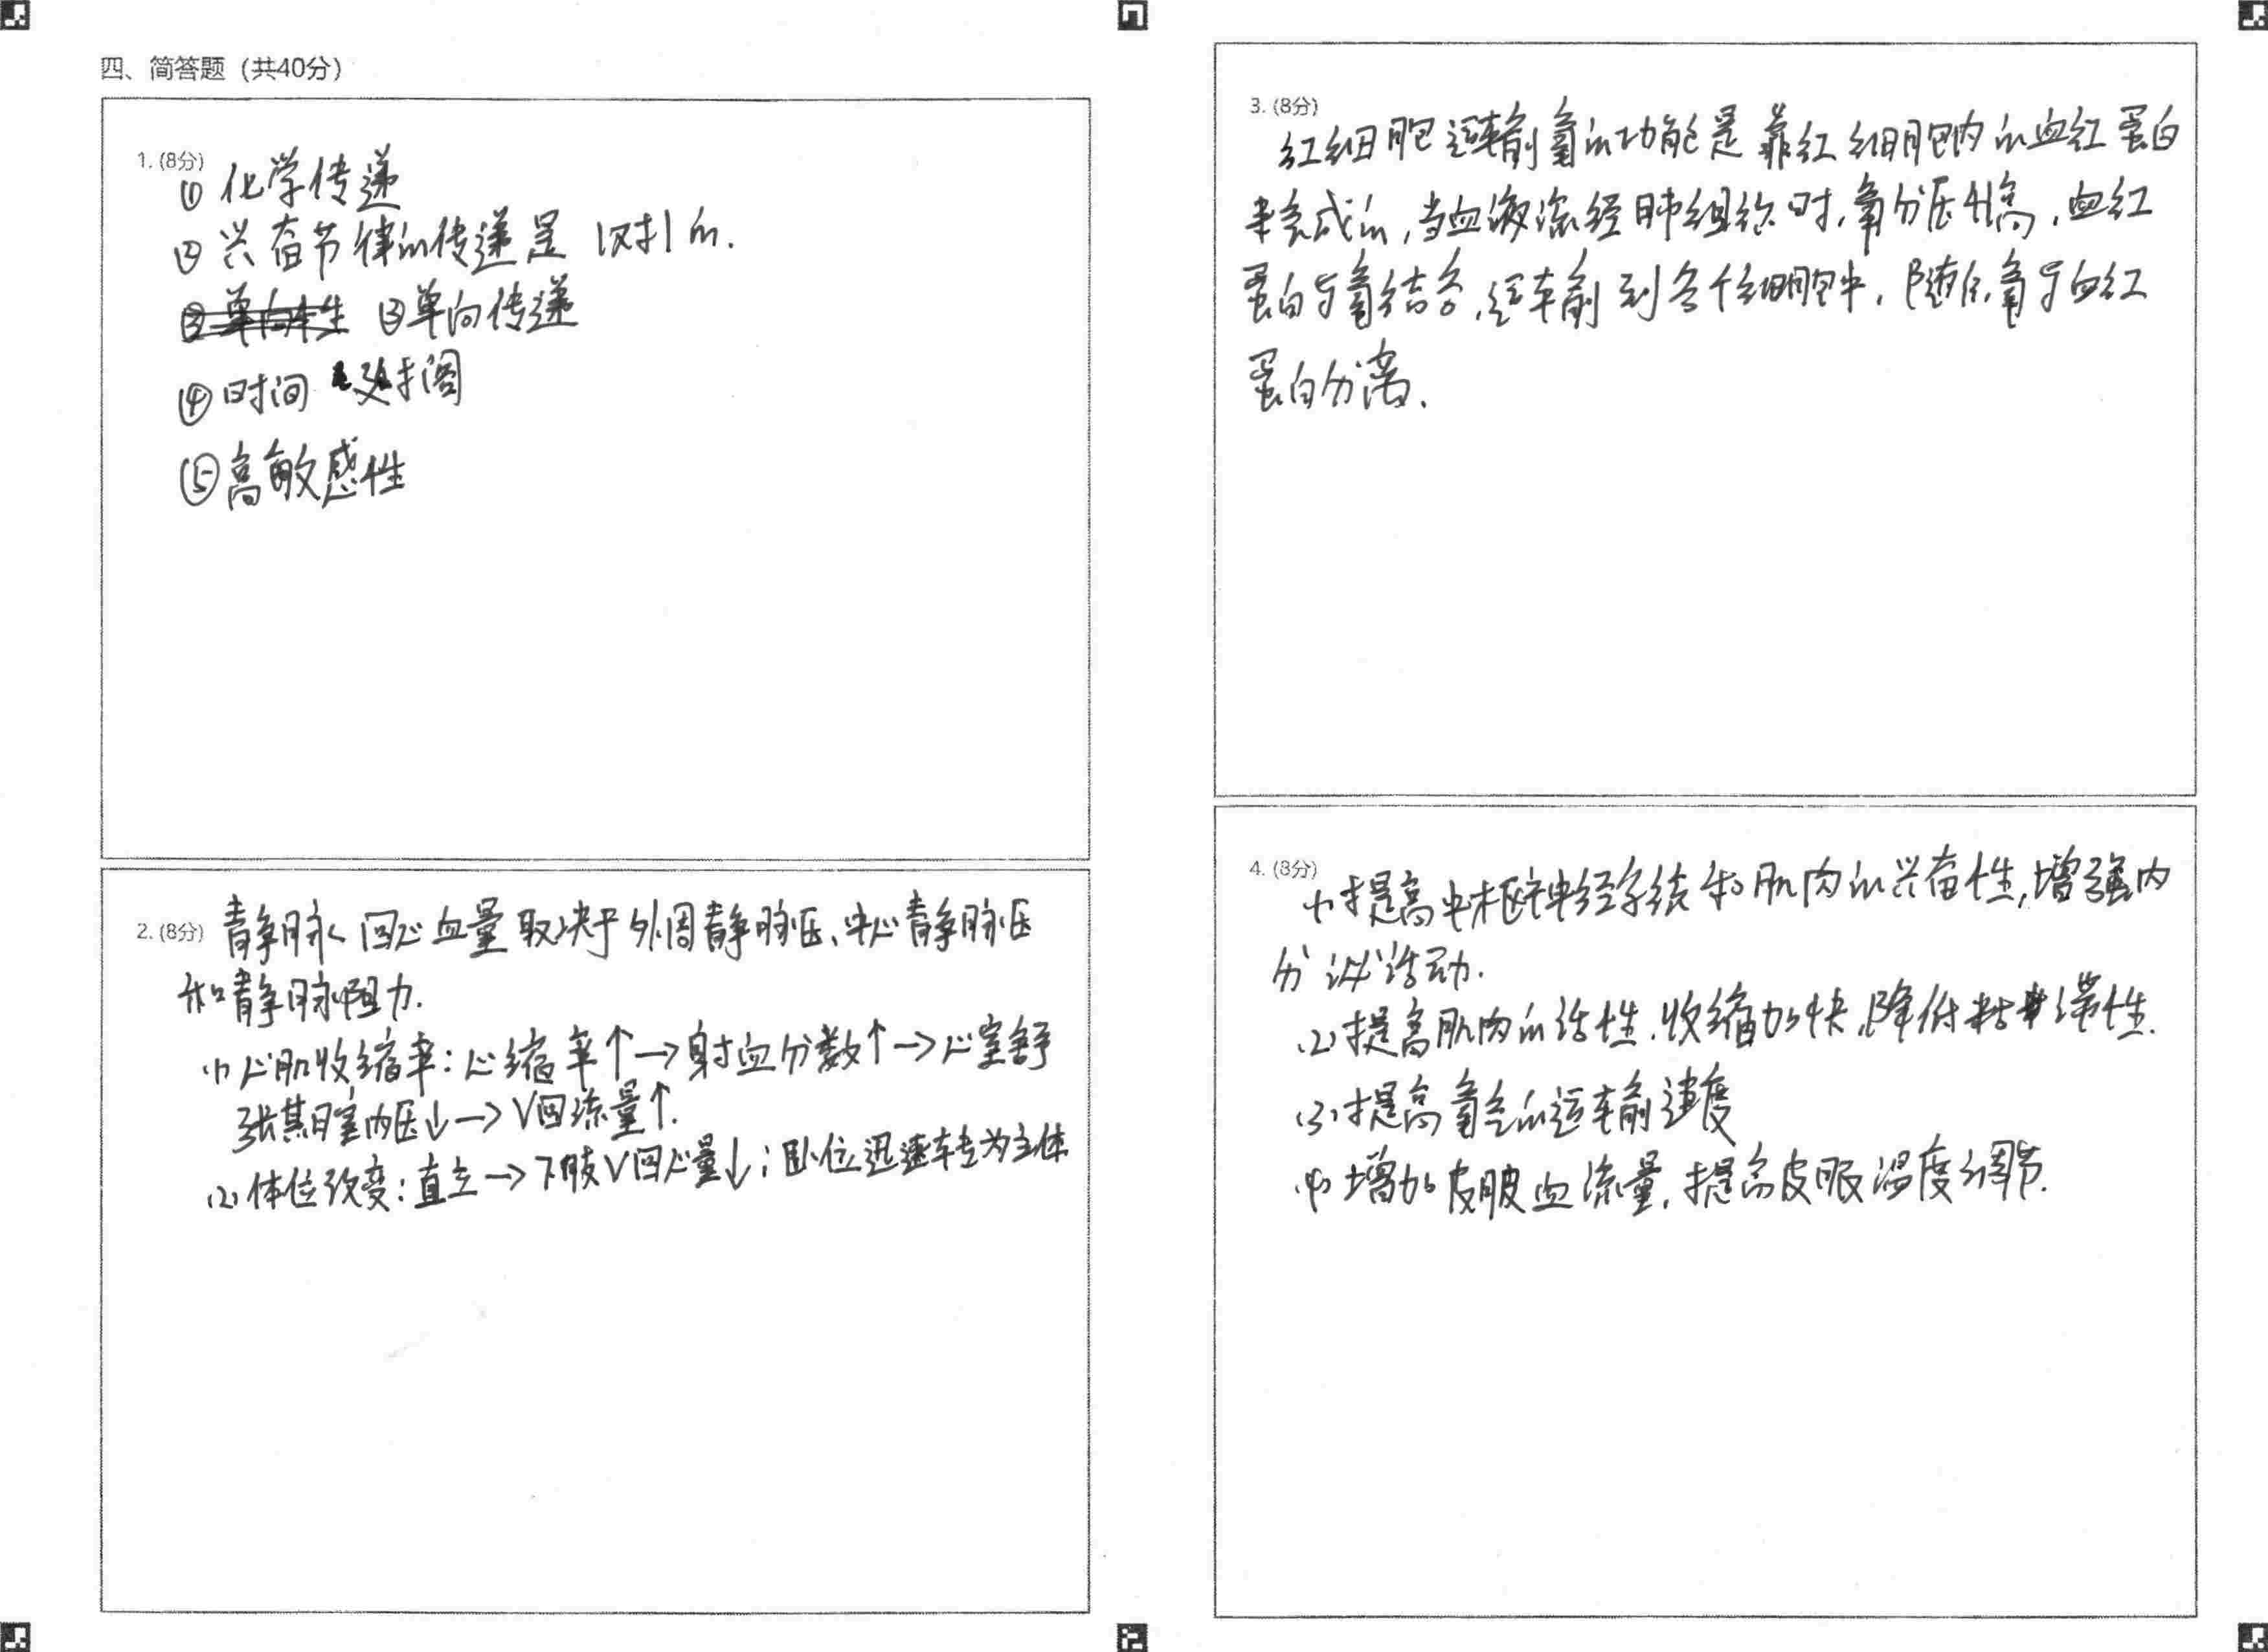 四、简答题（共40分）
1. (8分)
① 化学传递
② 兴奋节律的传递是1对1的.
③ 单向传递
④ 时间延搁
⑤ 高敏感性
2. (8分) 静脉回心血量取决于外周静脉压、中心静脉压
和静脉阻力.
(1) 心肌收缩率：心缩率↑→射血分数↑→心室舒
张其日室内压↓→V回流量↑.
(2) 体位改变：直立→下肢V回心量↓；卧位迅速转为立体
3. (8分)
红细胞运输氧的功能是靠红细胞内的血红蛋白
来完成的，当血液流经肺组织时，氧分压升高，血红
蛋白与氧结合，运输到各个细胞中，随后氧与血红
蛋白分离.
4. (8分)
(1) 提高中枢神经系统和肌肉的兴奋性，增强内
分泌活动.
(2) 提高肌肉的活性，收缩加快，降低粘滞性.
(3) 提高氧气的运输速度
(4) 增加皮肤血流量，提高皮肤温度调节.